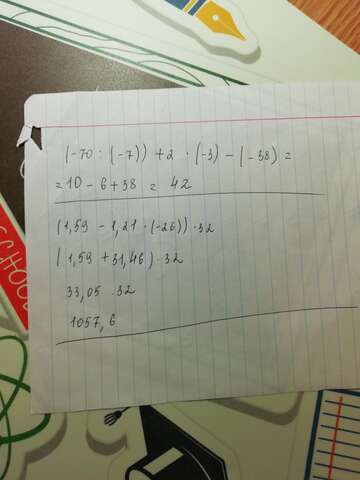 (-70 : (-7)) + 2 · (-3) - (-38) =
= 10 - 6 + 38 = 42
(1,59 - 1,21 · (-26)) · 32
(1,59 + 31,46) · 32
33,05 · 32
1057,6